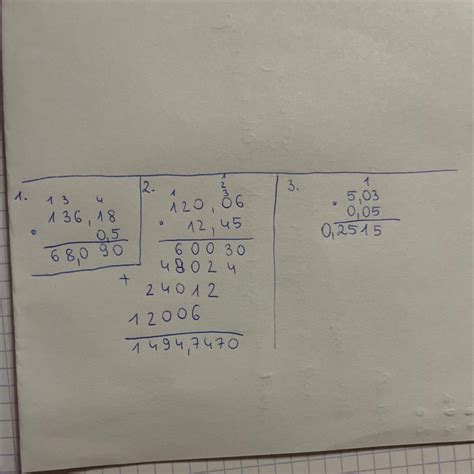 1.
1 3 4
136,18
· 0,5
68,090
2.
1
2
1 3
120,06
· 12,45
60030
48024
+
24012
12006
1494,7470
3.
1
5,03
· 0,05
0,2515